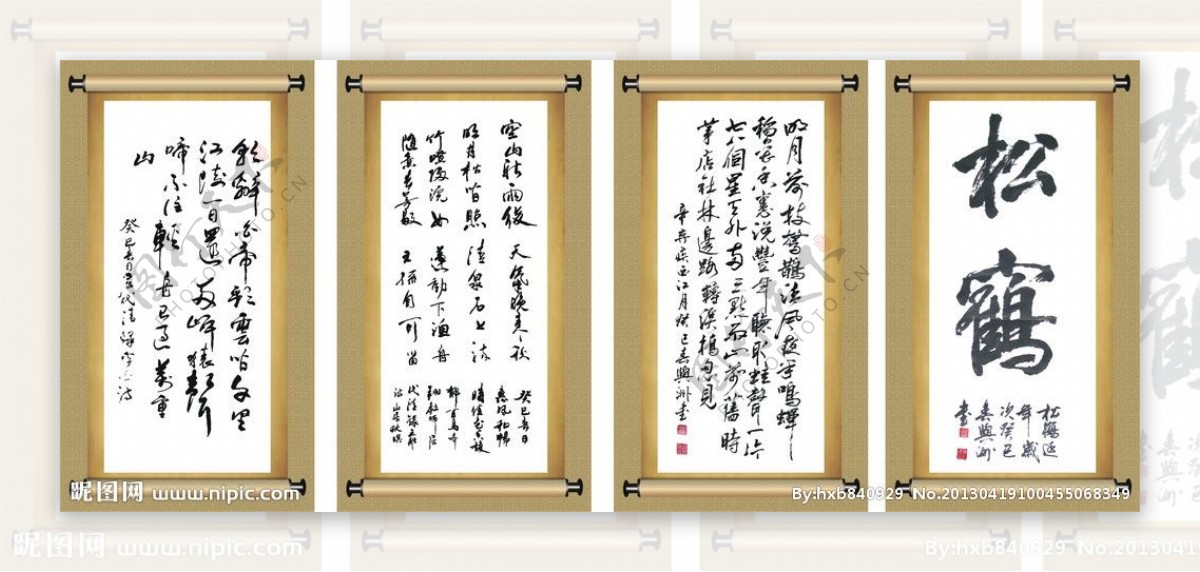 朝辞白帝彩云皆文里
江陵一日還两岸猿声
啼不住輕舟已过萬重
山
空山新雨後 天氣晚来秋
明月松皆照 清泉石上流
竹喧歸浣女 蓮動下漁舟
隨意春芳歇 王孫自可留
癸巳春日
惠風和暢
明月荷枝驚鵲清風夜半鳴蟬
稻花香裏说豐年聽取蛙聲一片
七八個星天外两三點雨山前舊時
茅店社林邊路轉溪橋忽見
辛弃疾西江月癸巳春興洲書
松
鶴
松鶴延
年歲
次癸巳
春興洲
書
昵图网 www.nipic.com
By:hxb840929 No.20130419100455068349
昵图网 www.nipic.com
By:hxb840929 No.201304191